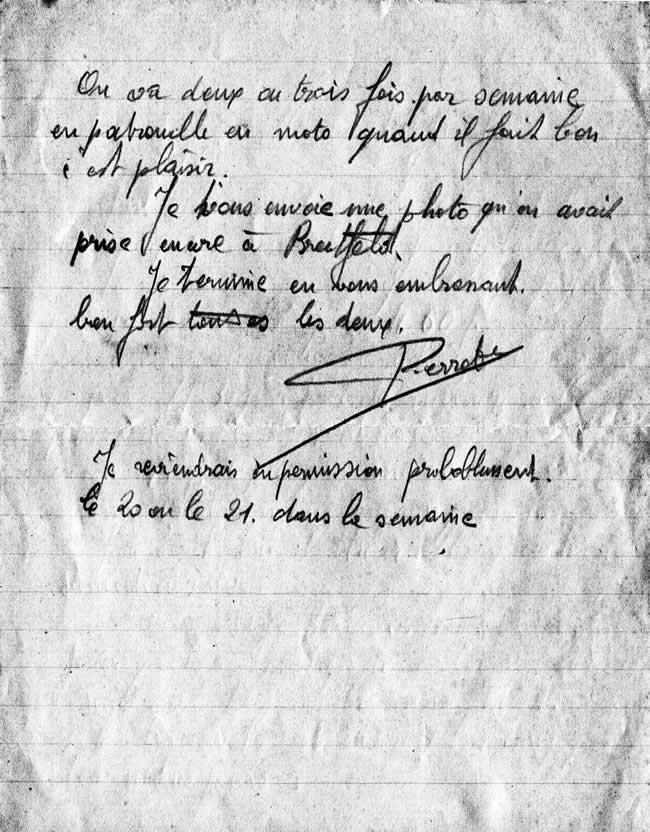 On va deux ou trois fois par semaine
en patrouille en moto quand il fait bon
c'est plaisir.
Je vous envoie une photo qu'on avait
prise encore à
Je termine en vous embrassant.
bien fort les deux.
Pierrot
Je reviendrais en permission probablement.
le 20 ou le 21. dans la semaine